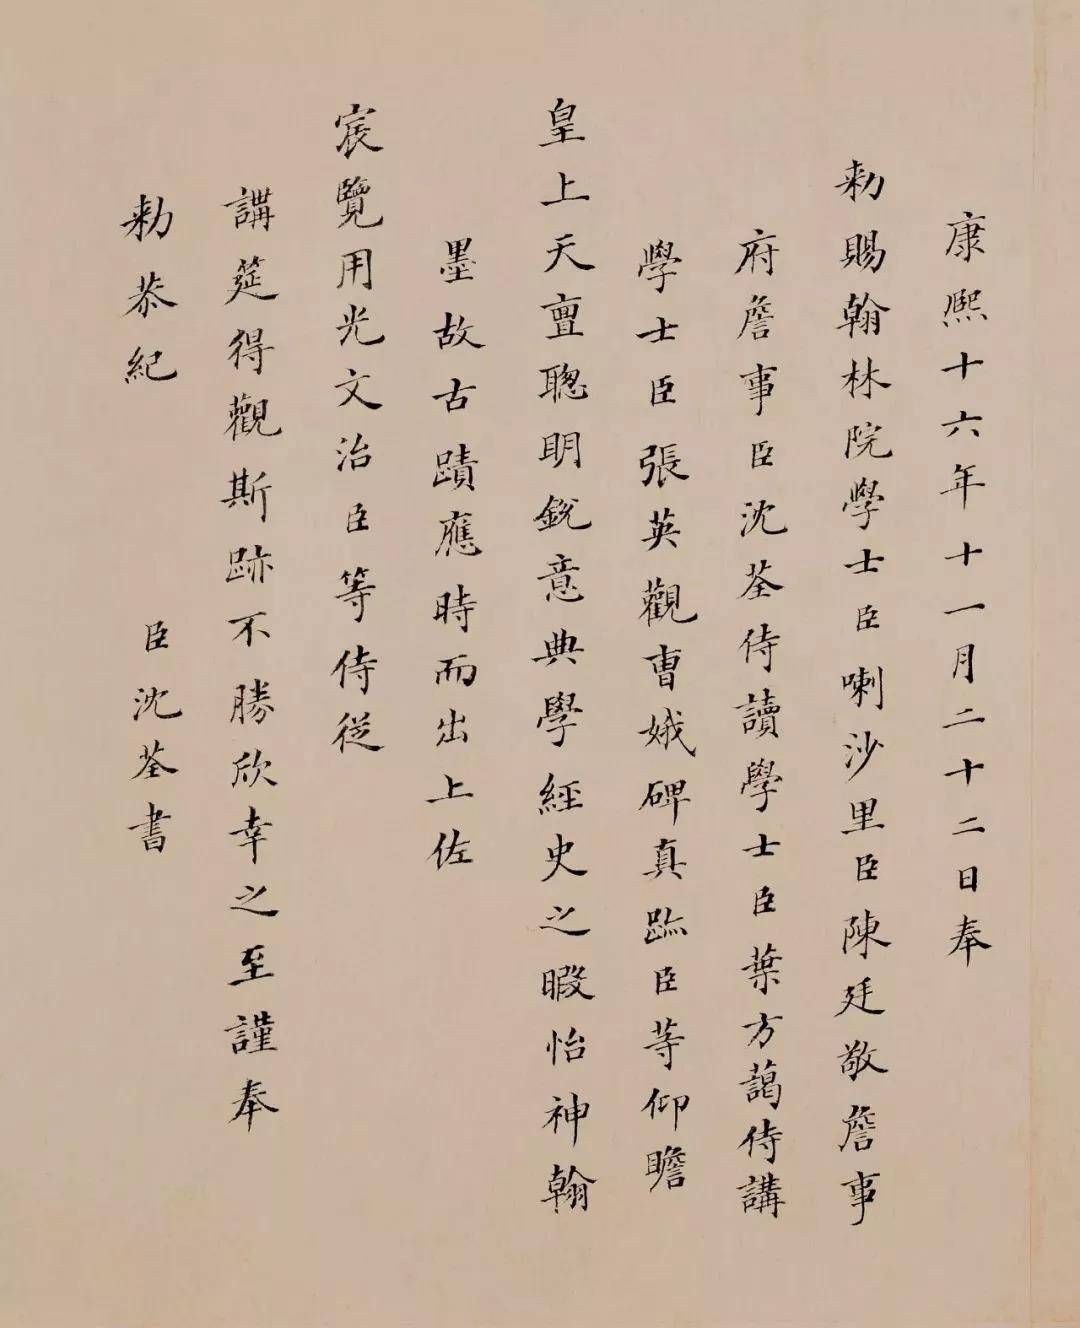 康熙十六年十一月二十二日奉
勑賜翰林院學士臣喇沙里臣陳廷敬詹事
府詹事臣沈荃侍讀學士臣葉方藹侍講
學士臣張英觀曹娥碑真跡臣等仰瞻
皇上天亶聰明銳意典學經史之暇怡神翰
墨故古蹟應時而出上佐
宸覽用光文治臣等侍從
講筵得觀斯跡不勝欣幸之至謹奉
勑恭紀
臣沈荃書